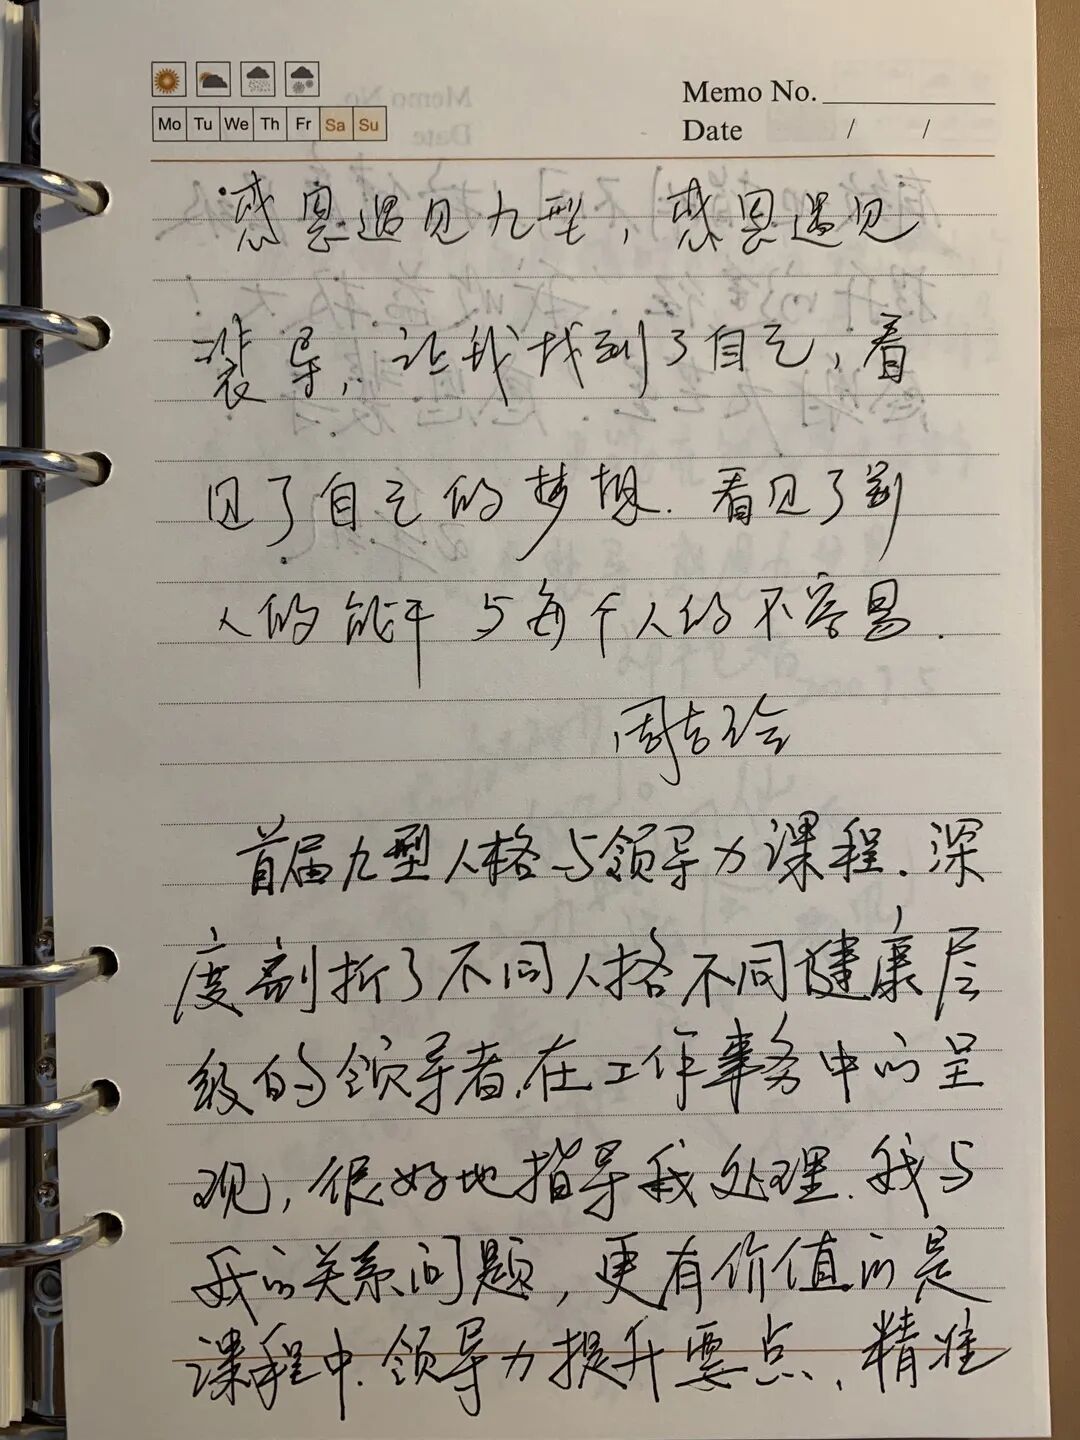 Memo No.
Mo Tu We Th Fr Sa Su
Date / /
感恩遇见九型，感恩遇见
裴导，让我找到了自己，看
见了自己的梦想．看见了别
人的能干与每个人的不容易．
周吉
首届九型人格与领导力课程．深
度剖折了不同人格不同健康层
级的领导者，在工作事务中的呈
观，很好地指导我处理．我与
我的关系问题，更有价值的是
课程中．领导力提升要点、精准